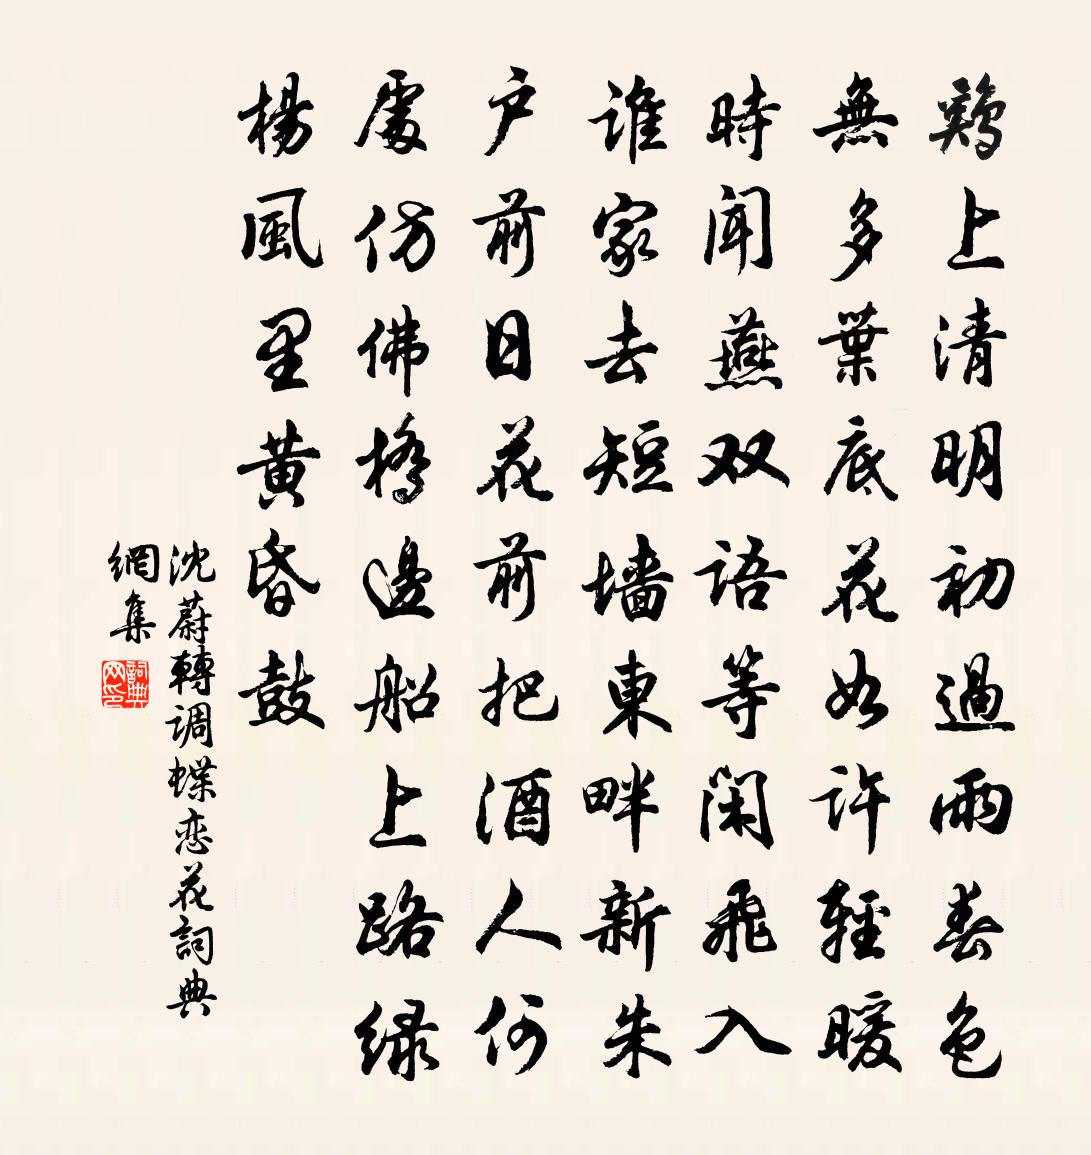 鷄上清明初過雨春色
無多葉底花如許輕暖
時聞燕双語等閑飛入
谁家去短墙東畔新朱
户前日花前把酒人何
處仿佛橋邊船上路绿
楊風里黄昏鼓
沈蔚轉调蝶恋花詞典
網集
詞典网印